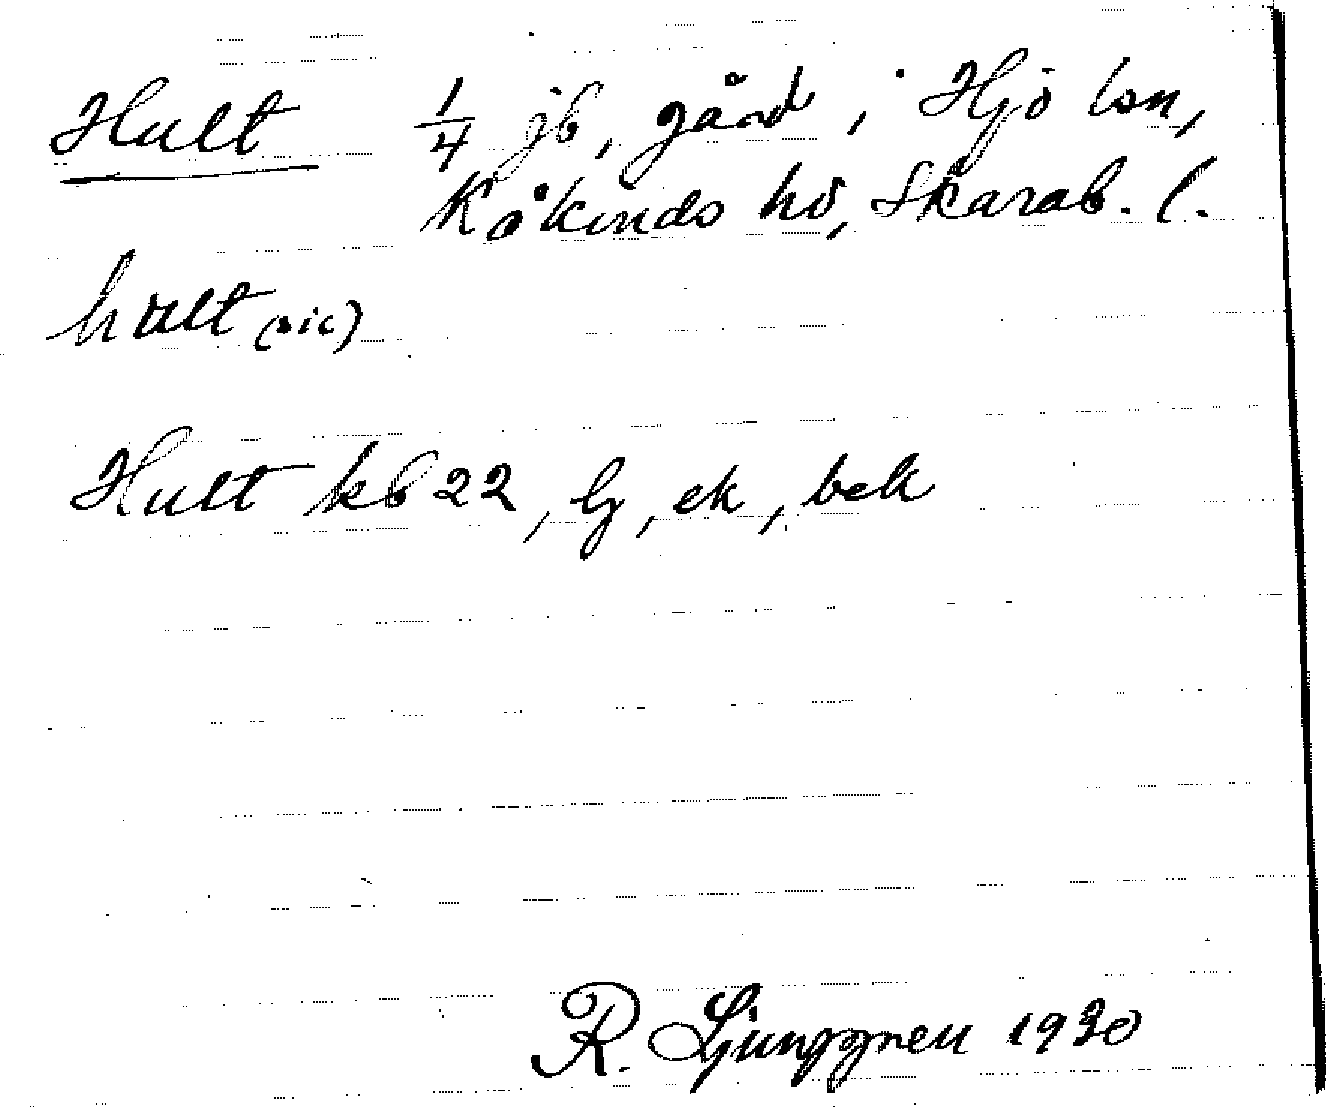 Hult 1/4 jb, gård, i Hjo lsn,
Kåkinds hd, Skarab. l.
hult (sic)
Hult kb 22, lj, ek, bek
R. Ljunggren 1930